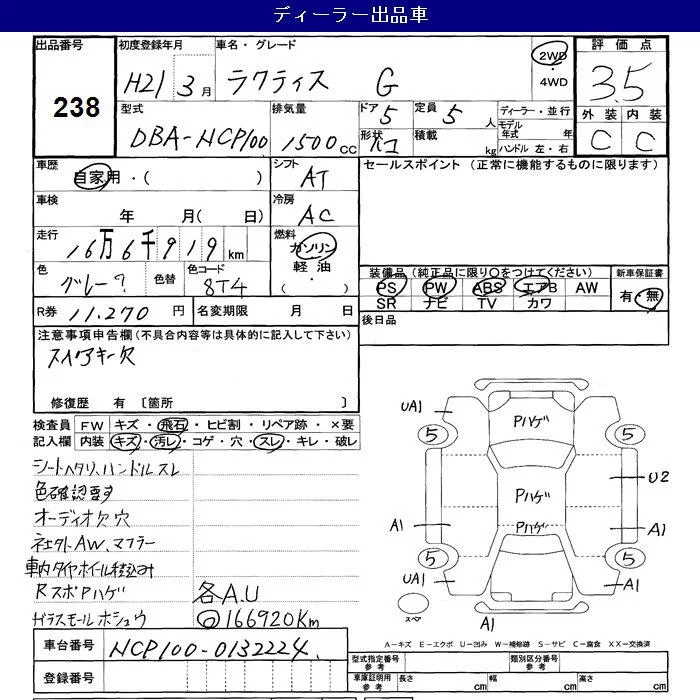 ディーラー出品車
出品番号 初度登録年月 車名・グレード 評価点
238 H21 3月 ラクティス G 2WD・4WD 3.5
型式 排気量 ドア 5 定員 5人 ディーラー・並行 外装 内装
DBA-NCP100 1500cc 形状 積載 kg モデル年式 年 ハンドル 左・右 C C
車歴 自家用・( ) シフト AT セールスポイント (正常に機能するものに限ります)
車検 年 月( 日) 冷房 AC
走行 16万6千919km 燃料 ガソリン 軽油 ・( )
色 グレー? 色替 色コード 8T4 装備品(純正品に限り○をつけてください) 新車保証書
PS PW ABS エアB AW 有・無
SR ナビ TV カワ
R券 11,270円 名変期限 月 日 後日品
注意事項申告欄(不具合内容等は具体的に記入して下さい)
スペアキー欠
修復歴 有 〔箇所 〕
検査員 FW キズ・飛石・ヒビ割・リペア跡・×要
記入欄 内装 キズ・汚レ・コゲ・穴・スレ・キレ・破レ
シートヘタリ、ハンドルスレ
色確認要す
オーディオ欠穴
社外AW、マフラー
車内タイヤホイール積込み
RスポPハゲ 各A.U
ガラスモールホシュウ ◎166920Km
UA1 Pハゲ
5 5
Pハゲ U2
A1 Pハゲ A1
5 5
UA1 A1
スペア A1
A-キズ E-エクボ U-凹み W-補修跡 S-サビ C-腐食 XX-交換済
車台番号 NCP100-0132224. 型式指定番号 参考 類別区分番号 参考
登録番号 車庫証明用 参考 長さ cm 幅 cm 高さ cm